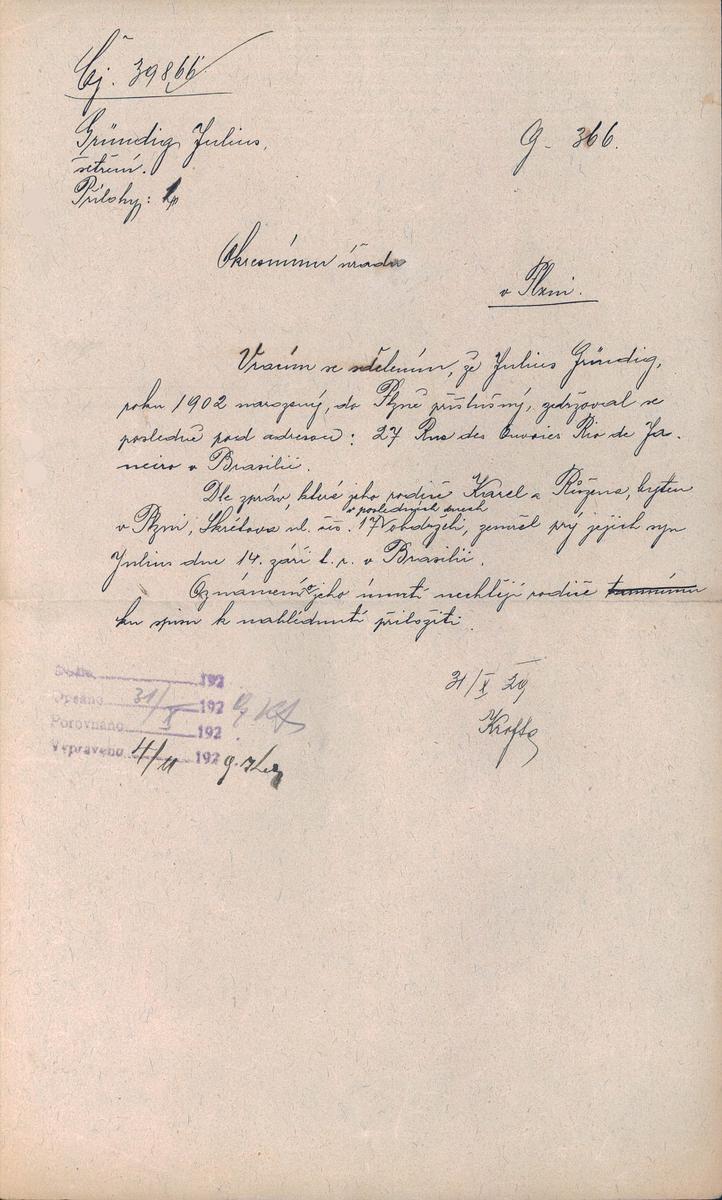 Čj. 39866
Gründig Julius,
šetření.
Přílohy: 1
G - 366.
Okresnímu úřadu
v Plzni.
Vracím se sdělením, že Julius Gründig,
roku 1902 narozený, do Plzně příslušný, zdržoval se
posledně pod adresou: 27 Rua des Ouvoier Rio de Ja-
neiro v Brasilii.
Dle zpráv, které jeho rodiče Karel a Růžena, bytem
v posledních dnech
v Plzni, Škrétova ul. čís. 17 obdrželi, zemřel prý jejich syn
Julius dne 14. září t. r. v Brasilii.
Oznámení o jeho úmrtí nechtějí rodiče
ku spisu k nahlédnutí přiložiti.
31/X 29
Krofta
192
Opsáno 31/X 192
Porovnáno 192
Vypraveno 4/11 192